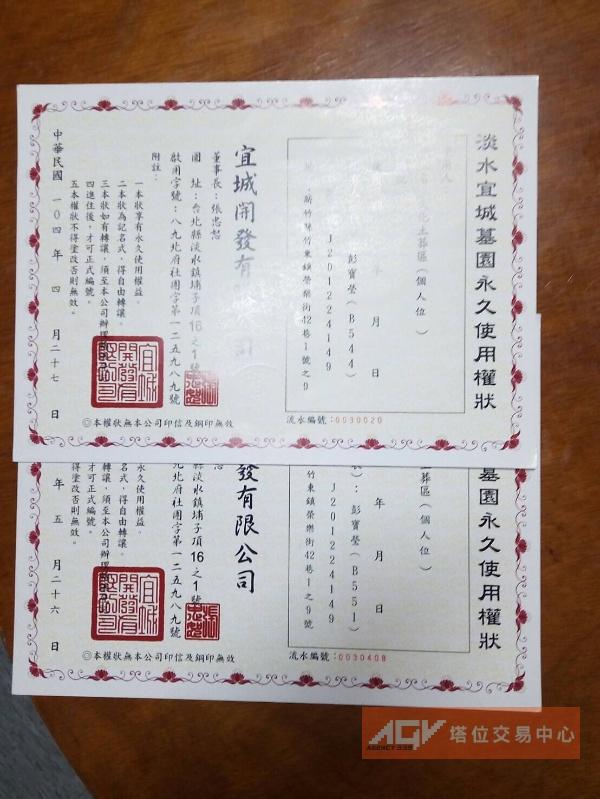 淡水宜城墓園永久使用權狀
化土葬區(個人位)
彭寶瑩(B544)
J201224149
新竹縣竹東鎮榮樂街42巷1號之9
年 月 日
流水編號:0030020
宜城開發有限公司
董事長:張忠恕
園址:台北縣淡水鎮埔子頂16之1號
啟用字號:八九北府社園字第一二五九八九號
附註:
一本狀享有永久使用權益.
二本狀為記名式,得自由轉讓.
三本狀如有轉讓,須至本公司辦理
四進住後,才可正式編號.
五本權狀不得塗改否則無效.
中華民國 一0四 年 四 月 二十七 日
宜城開發有限公司
◎本權狀無本公司印信及鋼印無效
墓園永久使用權狀
葬區(個人位)
:彭寶瑩(B551)
J201224149
竹東鎮榮樂街42巷1之9號
年 月 日
流水編號:0030408
發有限公司
恕
縣淡水鎮埔子頂16之1號
北府社園字第一二五九八九號
永久使用權益.
名式,得自由轉讓.
轉讓,須至本公司辦理
才可正式編號.
得塗改否則無效.
年 五 月 二十六 日
宜城開發有限公司
◎本權狀無本公司印信及鋼印無效
AGV 塔位交易中心
AGENCY 339